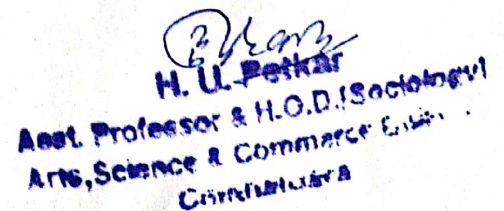 H. U. Petkar
Asst. Professor & H.O.D.(Sociology)
Arts, Science & Commerce